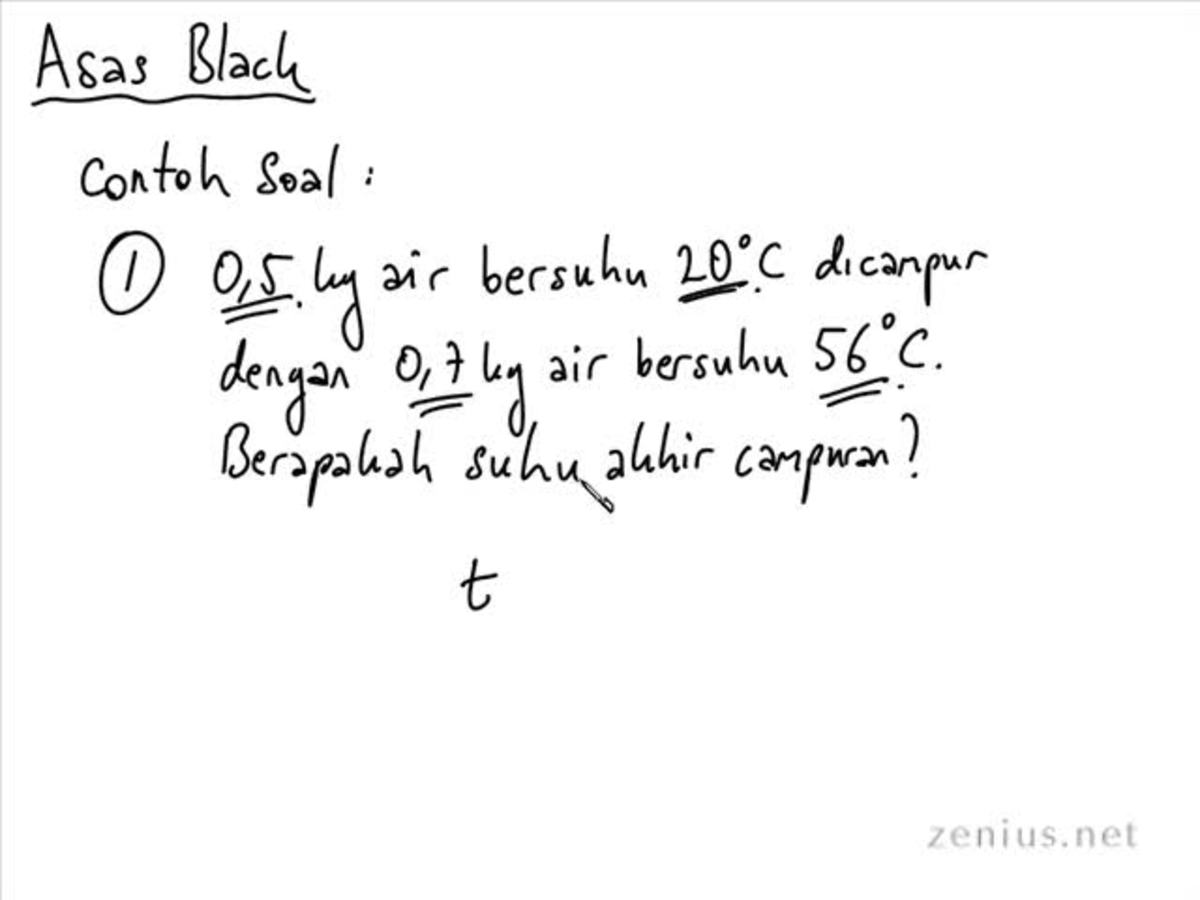 Asas Black
Contoh Soal :
1 0,5 kg air bersuhu 20°C dicampur
dengan 0,7 kg air bersuhu 56°C.
Berapakah suhu akhir campuran?
t
zenius.net